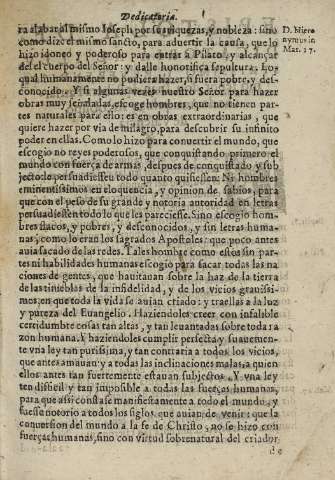 Dedicatoria.
ra alabar al mismo Joseph por sus riquezas, y nobleza: sino
como dize el mismo sancto, para aduertir la causa, que lo
hizo idoneo y poderoso para entrar a Pilato, y alcançar
del el cuerpo del Señor: y dalle honorifica sepultura. Lo
qual humanamente no pudiera hazer, si fuera pobre, y des-
conocido. Y si algunas vezes nuestro Señor para hazer
obras muy señaladas, escoge hombres, que no tienen par-
tes naturales para ello: es en obras extraordinarias, que
quiere hazer por via de milagro, para descubrir su infinito
poder en ellas. Como lo hizo para conuertir el mundo, que
escogio no reyes poderosos, que conquistando primero el
mundo con fuerça de armas, despues de conquistado y sub
jecto le persuadiessen todo quanto quisiessen: Ni hombres
eminentissimos en eloquencia, y opinion de sabios, para
que con el peso de su grande y notoria autoridad en letras
persuadiessen todo lo que les pareciesse. Sino escogio hom-
bres flacos, y pobres, y desconocidos, y sin letras huma-
nas, como lo eran los sagrados Apostoles: que poco antes
auia sacado de las redes. Tales hombres como estos sin par-
tes ni habilidades humanas escogio para sacar todas las na
ciones de gentes, que hauitauan sobre la haz de la tierra
de las tinieblas de la infidelidad, y de los vicios grauissi-
mos, en que toda la vida se auian criado: y traellas a la luz
y pureza del Euangelio. Haziendoles creer con infalible
certidumbre cosas tan altas, y tan leuantadas sobre toda ra
zon humana. Y haziendoles cumplir perfecta y suauemen-
te vna ley tan purissima, y tan contraria a todos los vicios,
que antes amauan y a todas las inclinaciones malas, a quien
ellos antes tan fuertemente estauan subjectos. Y vna ley
ten dificil y tan imposible a todas las fuerças humanas,
para que assi constasse manifiestamente a todo el mundo, y
fuesse notorio a todos los siglos que auian de venir: que la
conuersion del mundo a la fe de Christo, no se hizo con
fuerças humanas, sino con virtud sobrenatural del criador
de
D. Hiero
nymus in
Mat. 27.